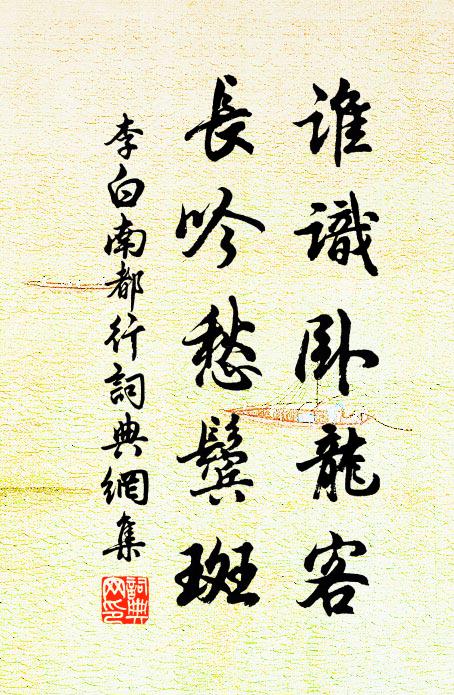 誰識卧龍客
長吟愁鬢斑
李白南都行詞典網集
詞典网印